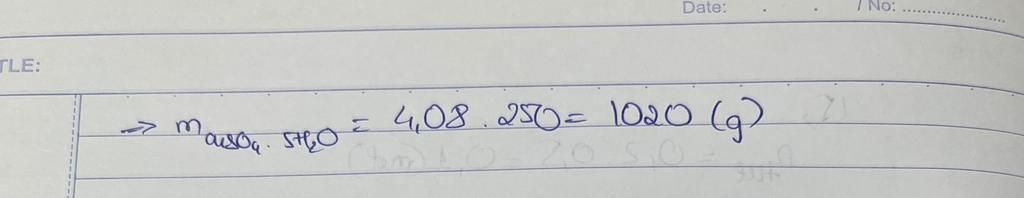 Date: . . / No: ....................
TLE:
=> m CuSO₄. 5H₂O = 4,08 . 250 = 1020 (g)